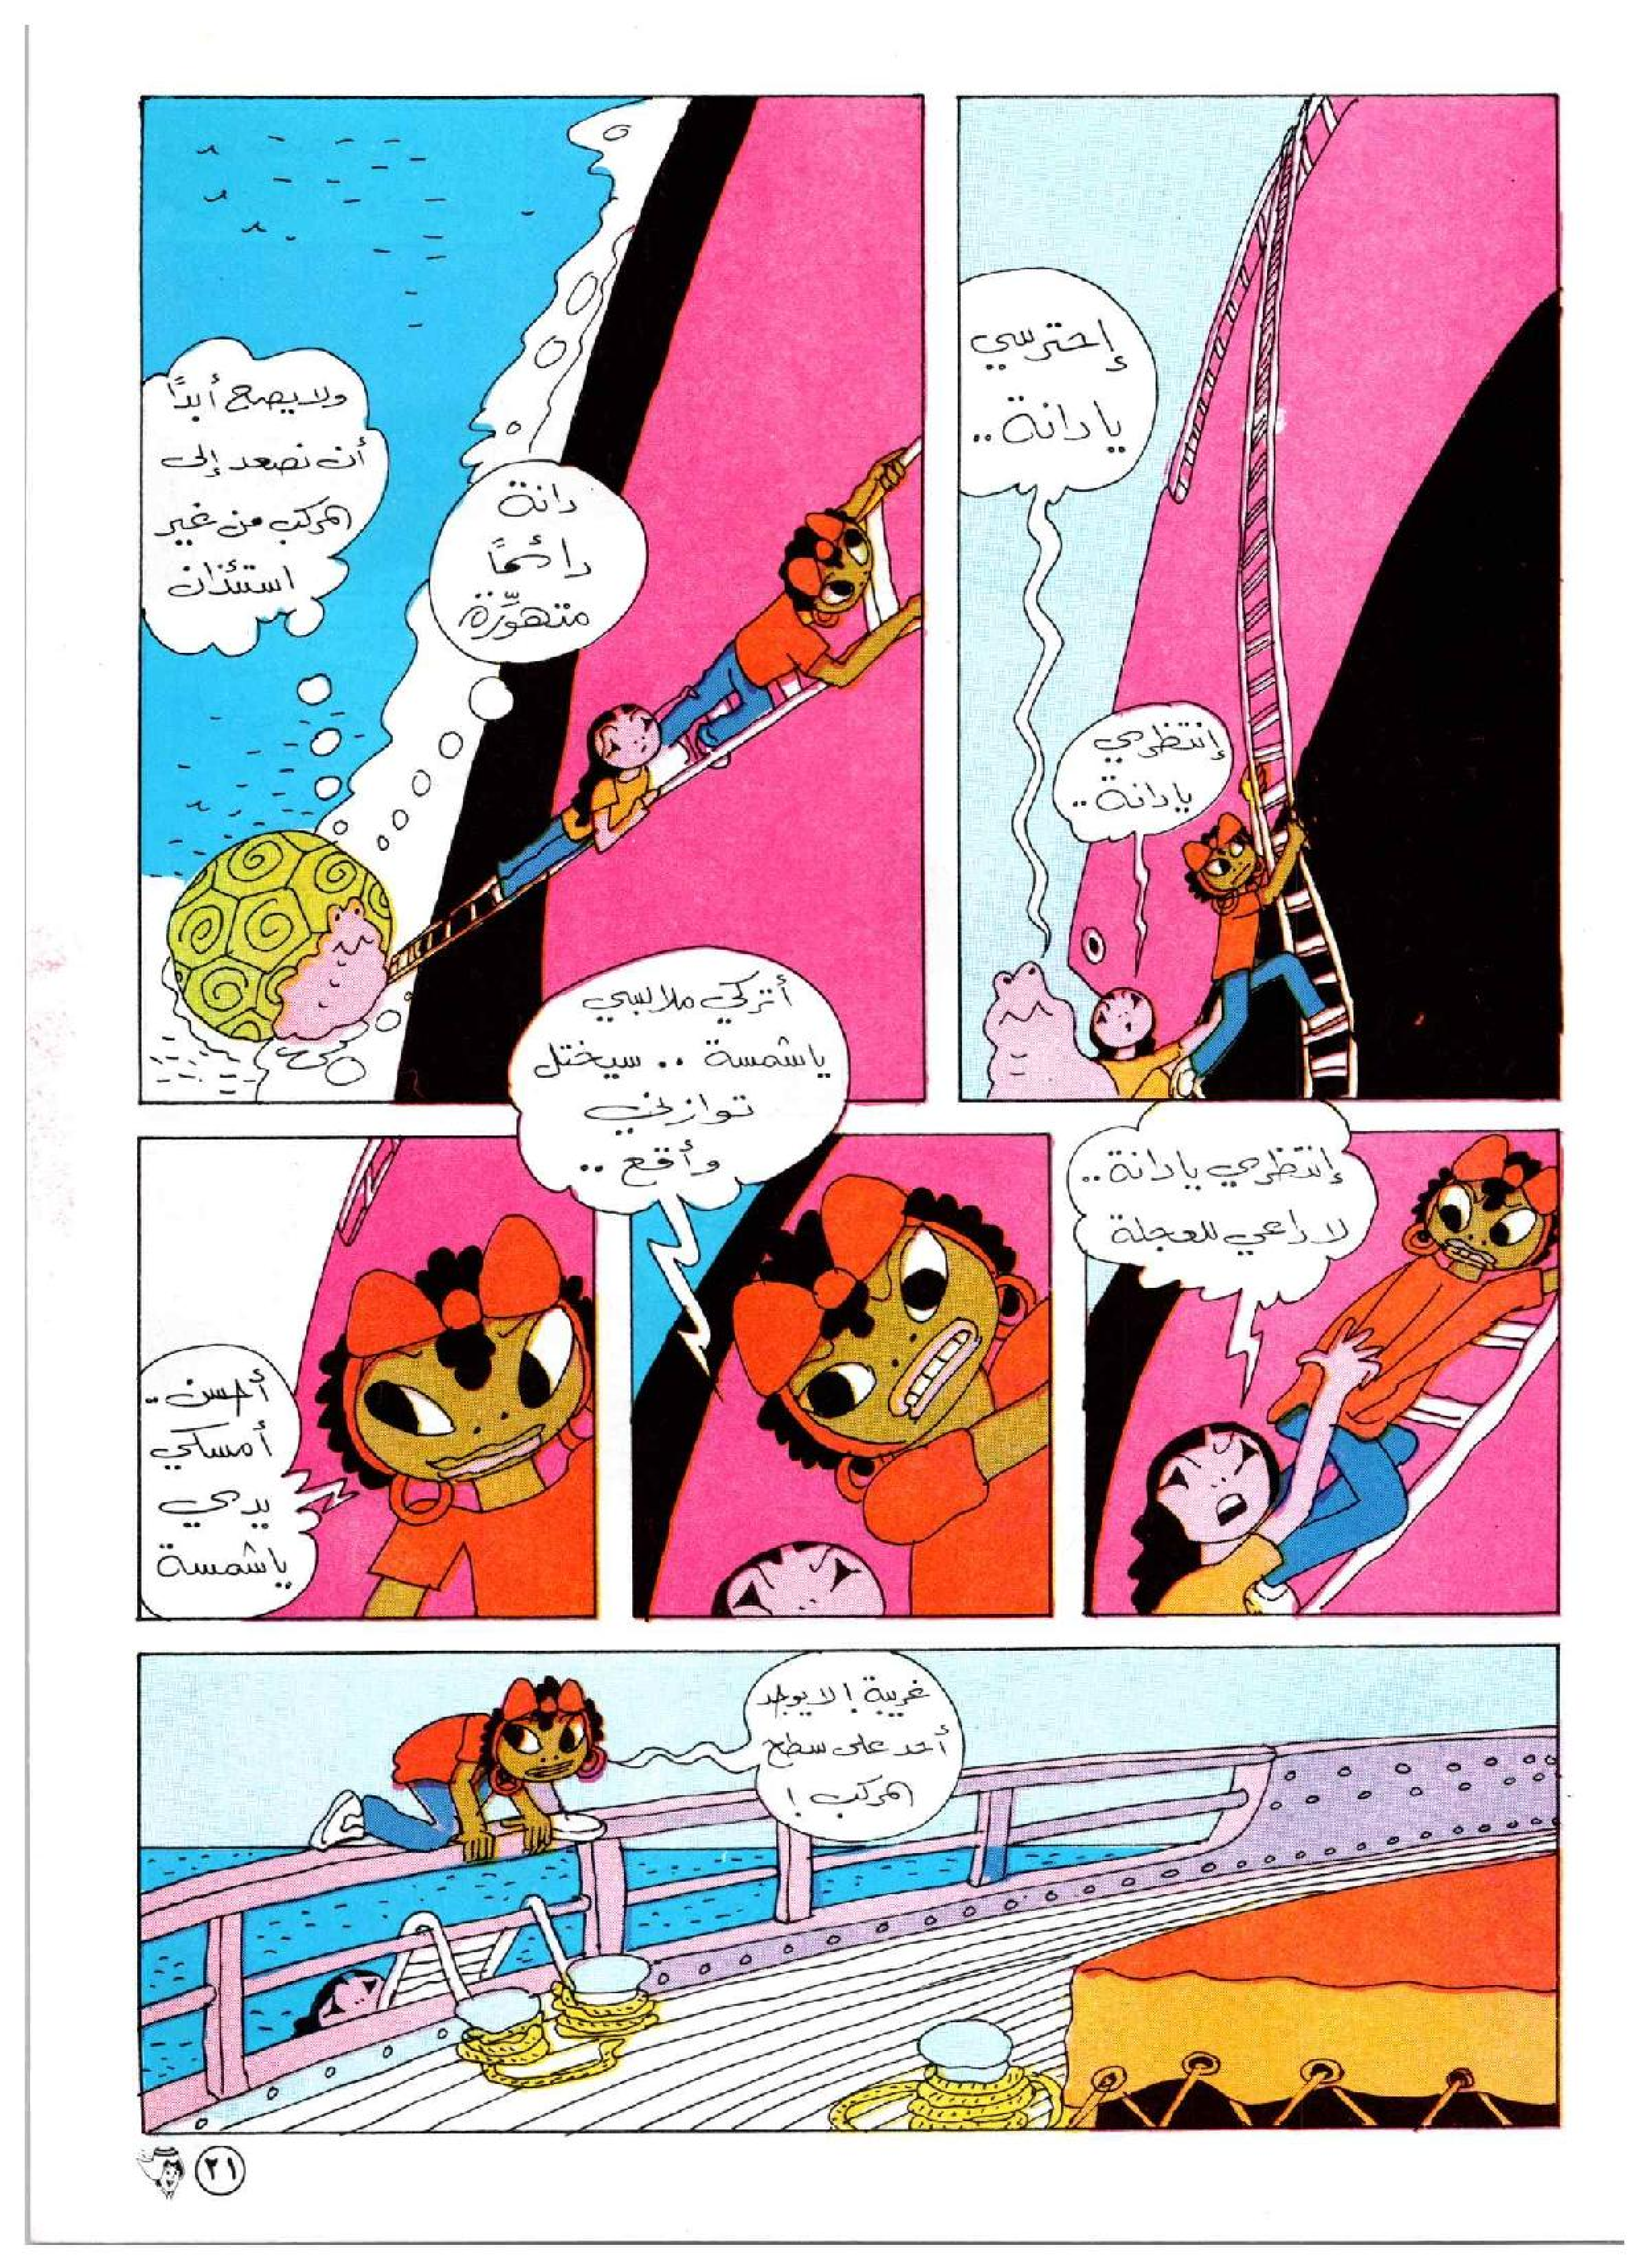 إحترسي
يا دانة ..
إنتظري
يا دانة ..
دانة
دائمًا
متهوّرة
ولا يصح أبدًا
أن نصعد إلى
المركب من غير
استئذان
إنتظري يا دانة ..
لا داعي للعجلة
أتركي ملابسي
يا شمسة .. سيختل
توازني
وأقع ..
أحسن ..
أمسكي
يدي
يا شمسة
غريبة ! لا يوجد
أحد على سطح
المركب !
٢١